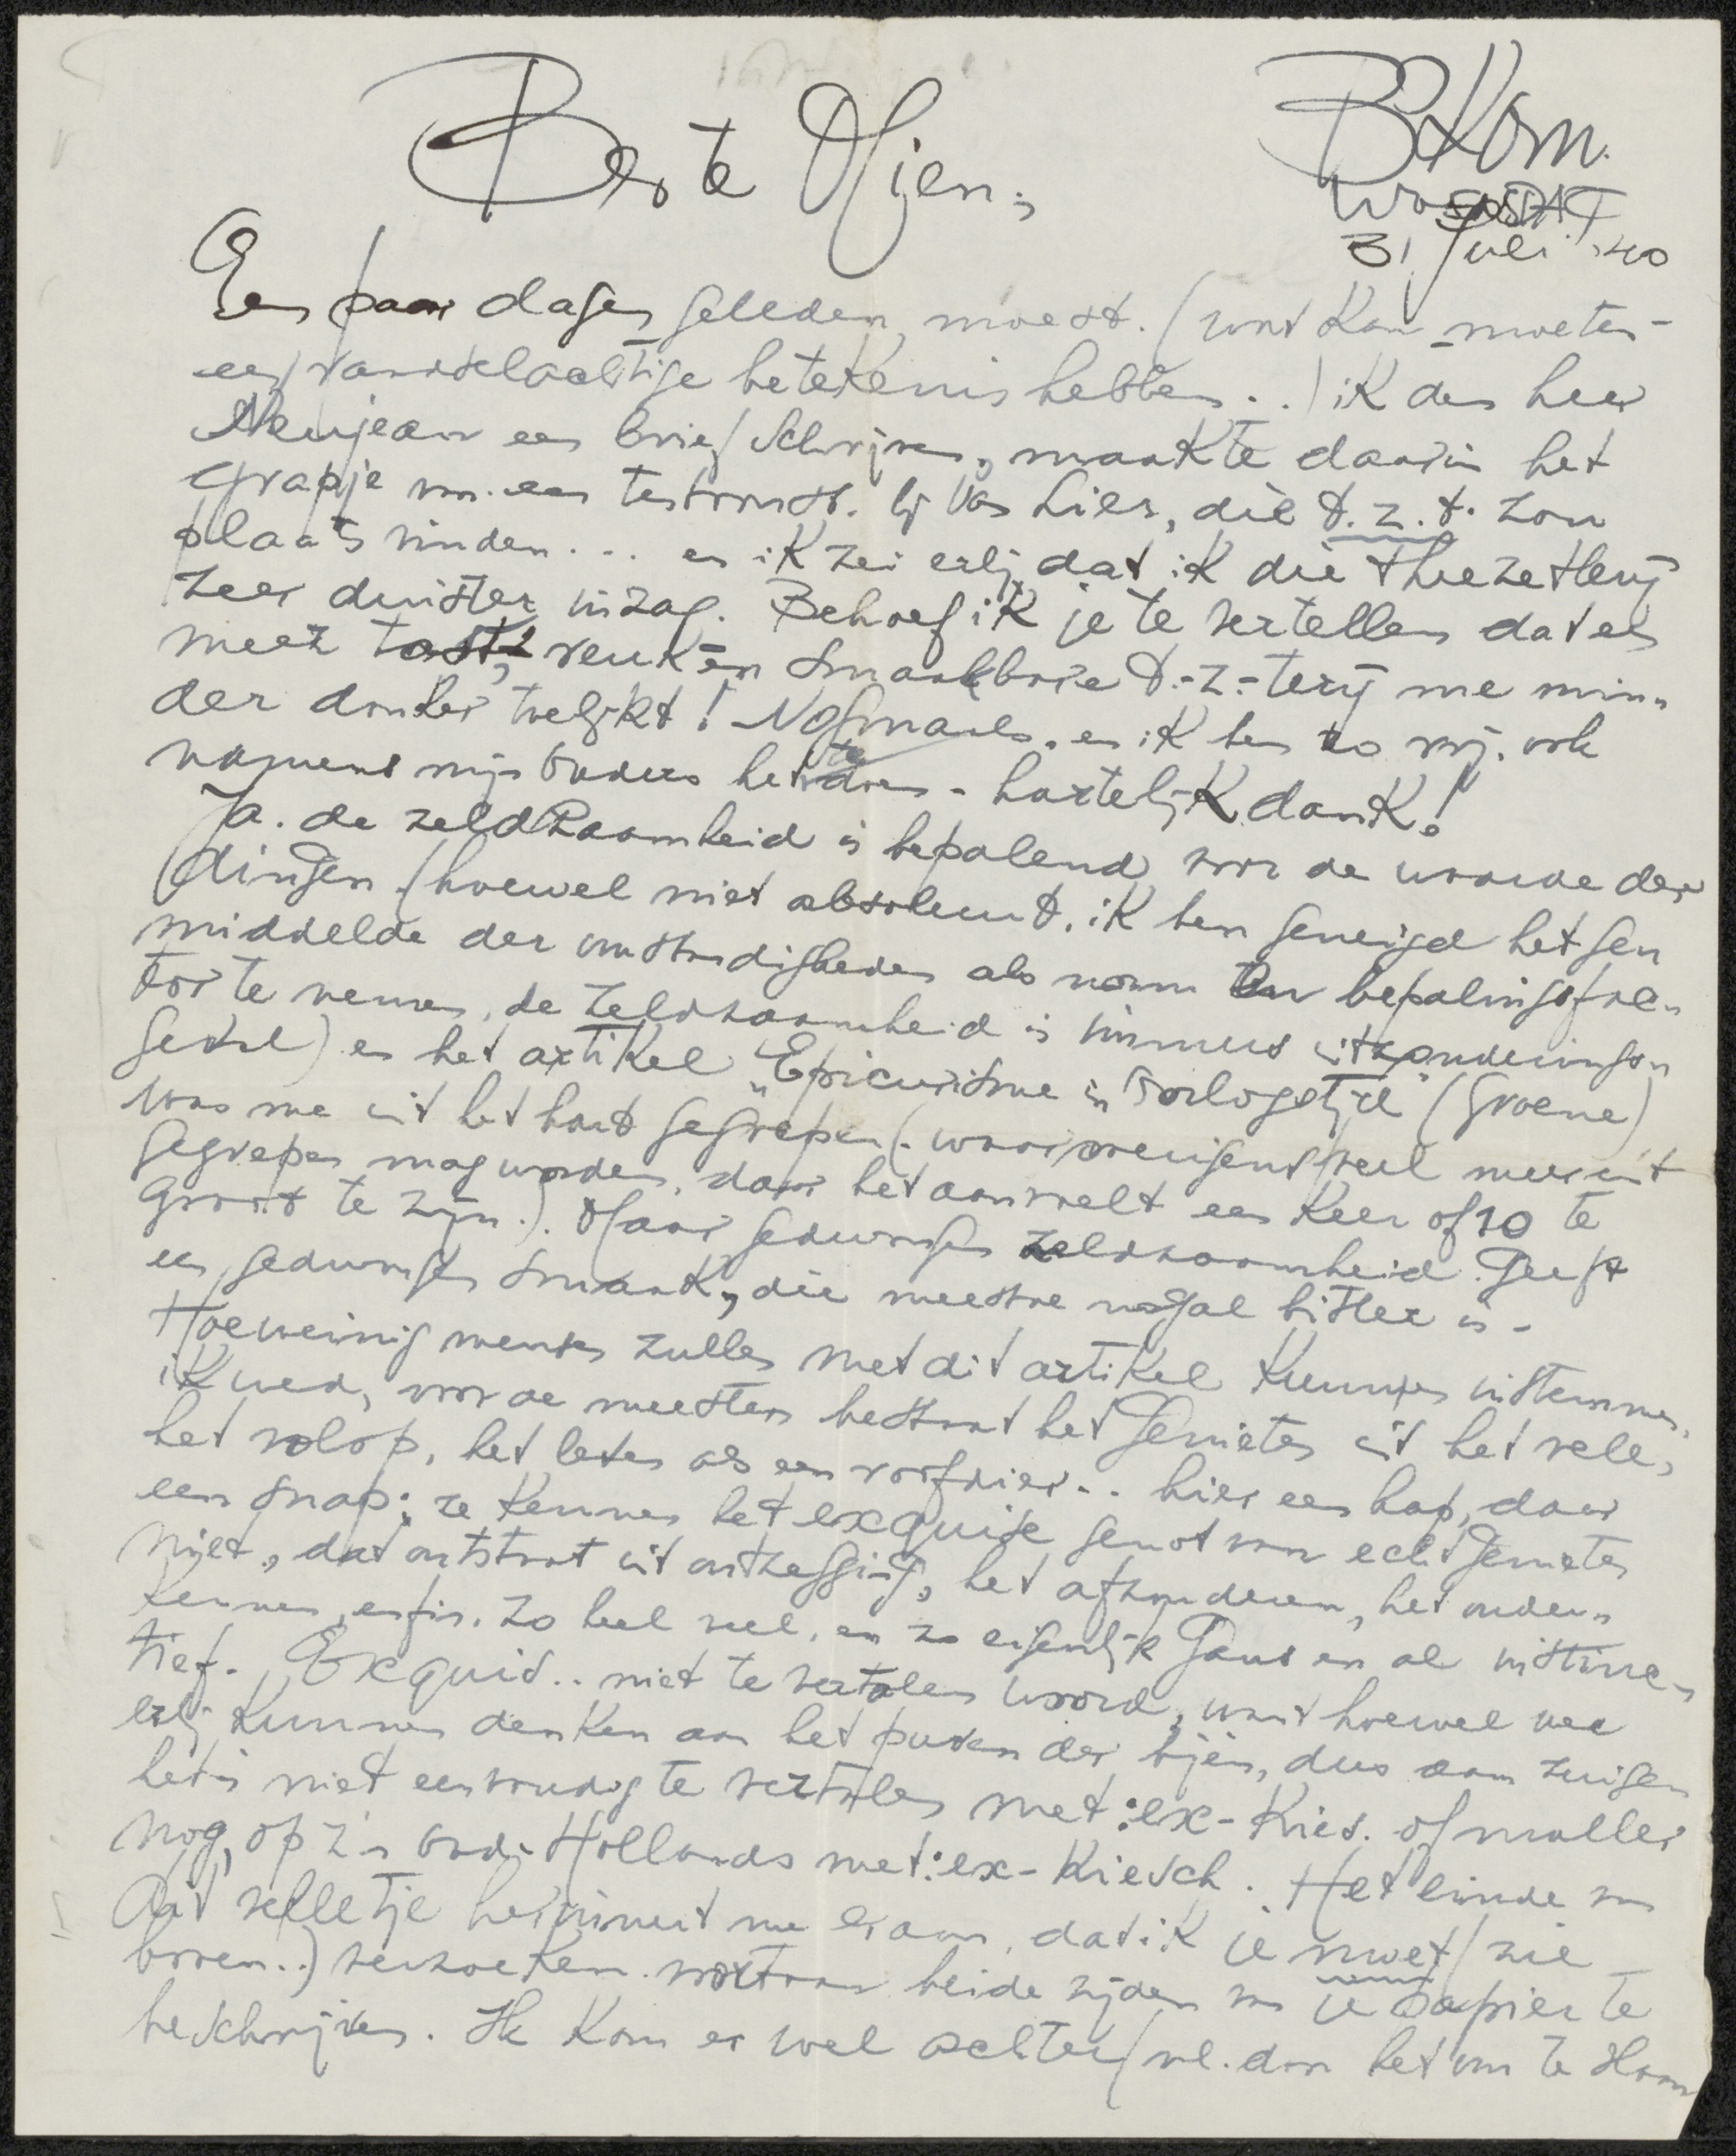 Beste Oljen;
BKom.
Woensdag
31 Juli '40
Een paar dagen geleden moest. (wat kan moeten
een raadselachtige betekenis hebben..) ik den heer
een brief schrijven, maakte daarin het
grapje van een bij Vos hier, die t.z.t. zou
plaats vinden... en ik zei erbij dat ik die theezetterij
zeer duister inzag. Behoef ik je te vertellen dat een
meer tast, reuk en smaakbare t.-z.-terij me min-
der donker toelijkt! Nogmaals. en ik ben zo vrij. ook
namens mijn ouders hartelijk dank!
Ja. de zeldzaamheid is bepalend voor de waarde der
dingen (hoewel niet absoluut. ik ben geneigd het gen
middelde der omstandigheden als norm ter bepalingsfac-
tor te nemen, de zeldzaamheid is immers uitzonderings-
getal) en het artikel „Epicurisme in Oorlogstijd" (Groene)
was me uit het hart gegrepen (. waar overigens veel meer uit
gegrepen mag worden, daar het aanvoelt een keer of 10 te
groot te zijn.). Ofaar gedwongen zeldzaamheid. Geeft
een gedwongen smaak, die meestal nogal bitter is -
Hoe weinig mensen zullen met dit artikel kunnen instemmen,
ik wed, voor de meesten bestaat het Genieten uit het vele,
het volop, het leven als een roofdier.. hier een hap, daar
een snap; ze kennen het exquise genot van echt Genieten
niet, dat ontstaat uit ontzegging, het afzonderen, het onder-
kennen, enfin. zo heel veel, en zo eigenlijk Gaus en al instinc-
tief. Exquis.. niet te vertalen woord, want hoewel we
erbij kunnen denken aan het puren der bijen, dus aan zuigen
het is niet eenvoudig te vertalen met: ex-Kies. of maller
nog, op z'n Oud-Hollands met: ex-Kiesch. Het einde van
dit velletje herinnert me eraan, dat ik je moet (zie
boven..) verzoeken voortaan beide zijden van je papier te
beschrijven. Ik kom er wel achter (nl. dan het om te slaan